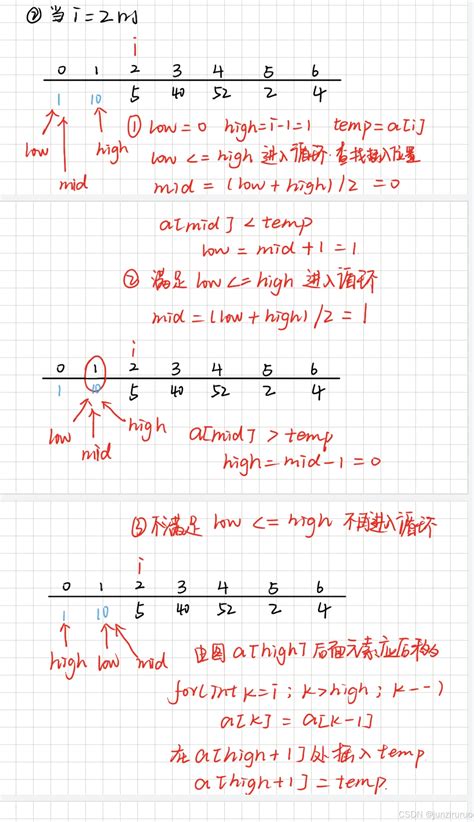 ② 当 i=2时
i
0 1 2 3 4 5 6
1 10 5 40 52 2 4
low mid high
① low=0 high=i-1=1 temp=a[i]
low <= high 进入循环.查找插入位置
mid = (low+high)/2 =0
a[mid] < temp
low = mid+1 =1
② 满足 low<=high 进入循环
mid =(low+high)/2 =1
i
0 1 2 3 4 5 6
1 10 5 40 52 2 4
low mid high
a[mid] > temp
high = mid-1 =0
③不满足 low <= high 不再进入循环
i
0 1 2 3 4 5 6
1 10 5 40 52 2 4
high low mid
由图 a[high]后面元素应后移
for(int k=i ; k>high ; k--)
a[k] = a[k-1]
在a[high+1]处插入temp
a[high+1] = temp.
CSDN @junziruruo